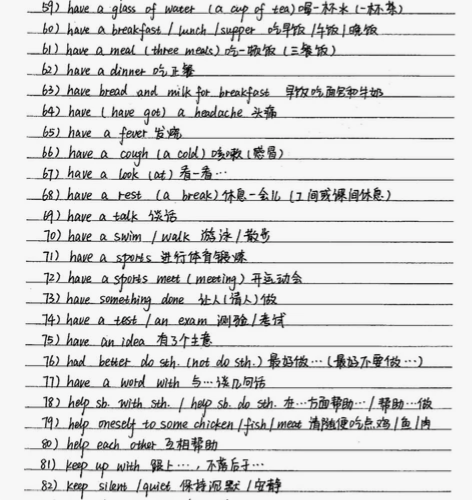 59) have a glass of water (a cup of tea) 喝一杯水 (一杯茶)
60) have a breakfast / lunch / supper 吃早饭 /午饭 /晚饭
61) have a meal (three meals) 吃一顿饭 (三餐饭)
62) have a dinner 吃正餐
63) have bread and milk for breakfast 早饭吃面包和牛奶
64) have (have got) a headache 头痛
65) have a fever 发烧
66) have a cough (a cold) 咳嗽 (感冒)
67) have a look (at) 看一看…
68) have a rest (a break) 休息一会儿 (工间或课间休息)
69) have a talk 谈话
70) have a swim / walk 游泳 / 散步
71) have a sports 进行体育锻炼
72) have a sports meet (meeting) 开运动会
73) have something done 让人(请人)做
74) have a test / an exam 测验 / 考试
75) have an idea 有了个主意
76) had better do sth. (not do sth.) 最好做… (最好不要做…)
77) have a word with 与…谈几句话
78) help sb. with sth. / help sb. do sth. 在…方面帮助… / 帮助…做
79) help oneself to some chicken / fish / meat 请随便吃点鸡 / 鱼 / 肉
80) help each other 互相帮助
81) keep up with 跟上…, 不落后于…
82) keep silent / quiet 保持沉默 / 安静